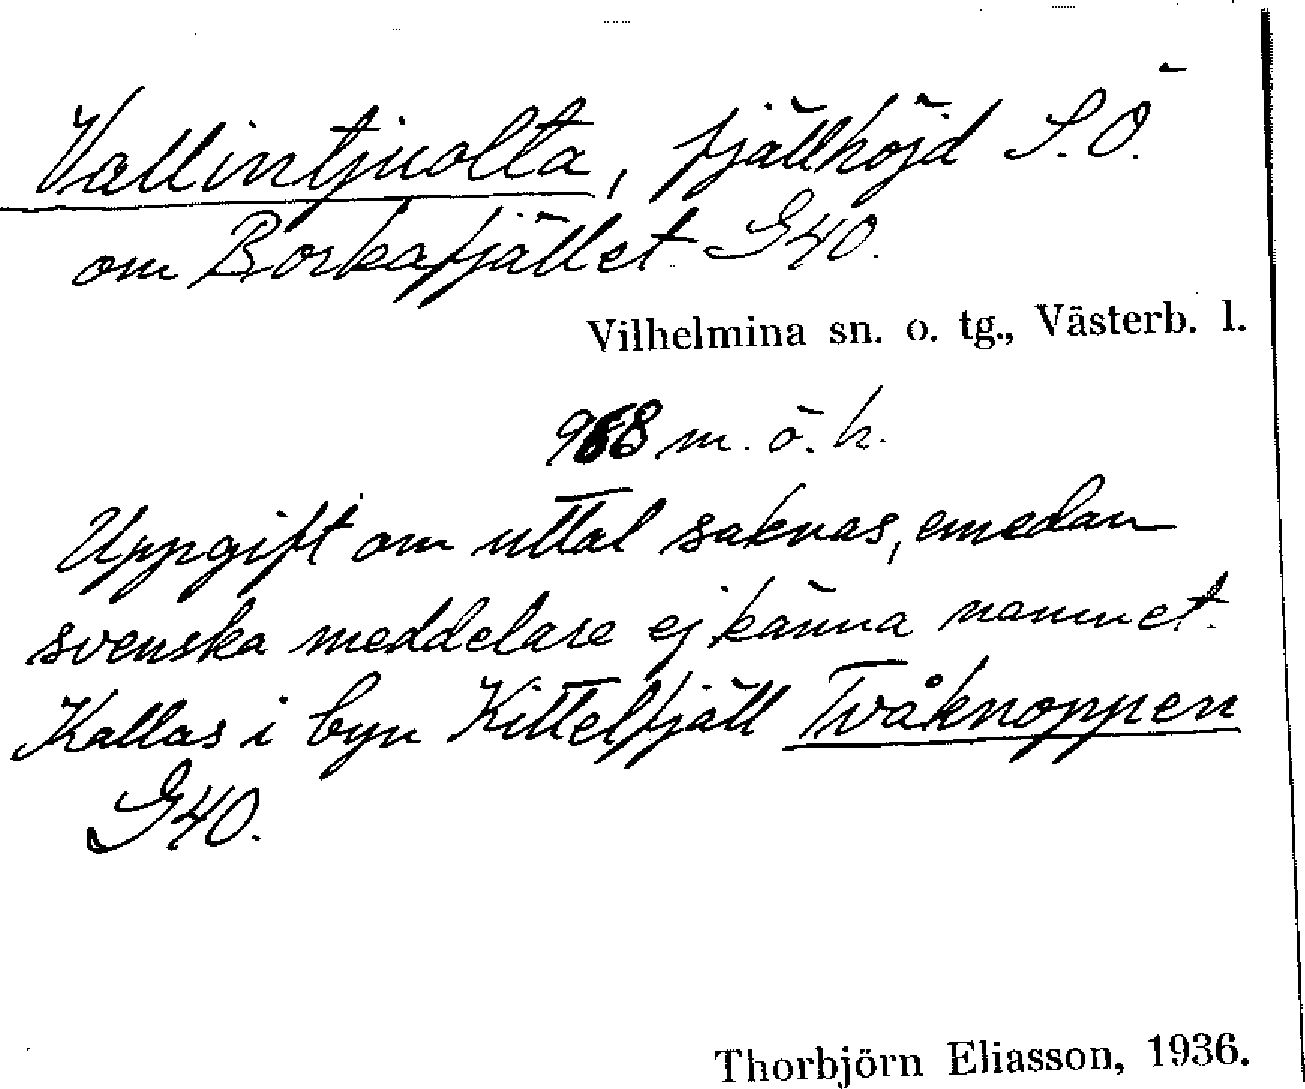 Vallintjuolta, fjällhöjd S.Ö.
om Borkafjället G40.
Vilhelmina sn. o. tg., Västerb. l.
m. ö. h.
Uppgift om uttal saknas, emedan
svenska meddelare ej känna namnet.
Kallas i byn Kittelfjäll Tvåknoppen
G40.
Thorbjörn Eliasson, 1936.